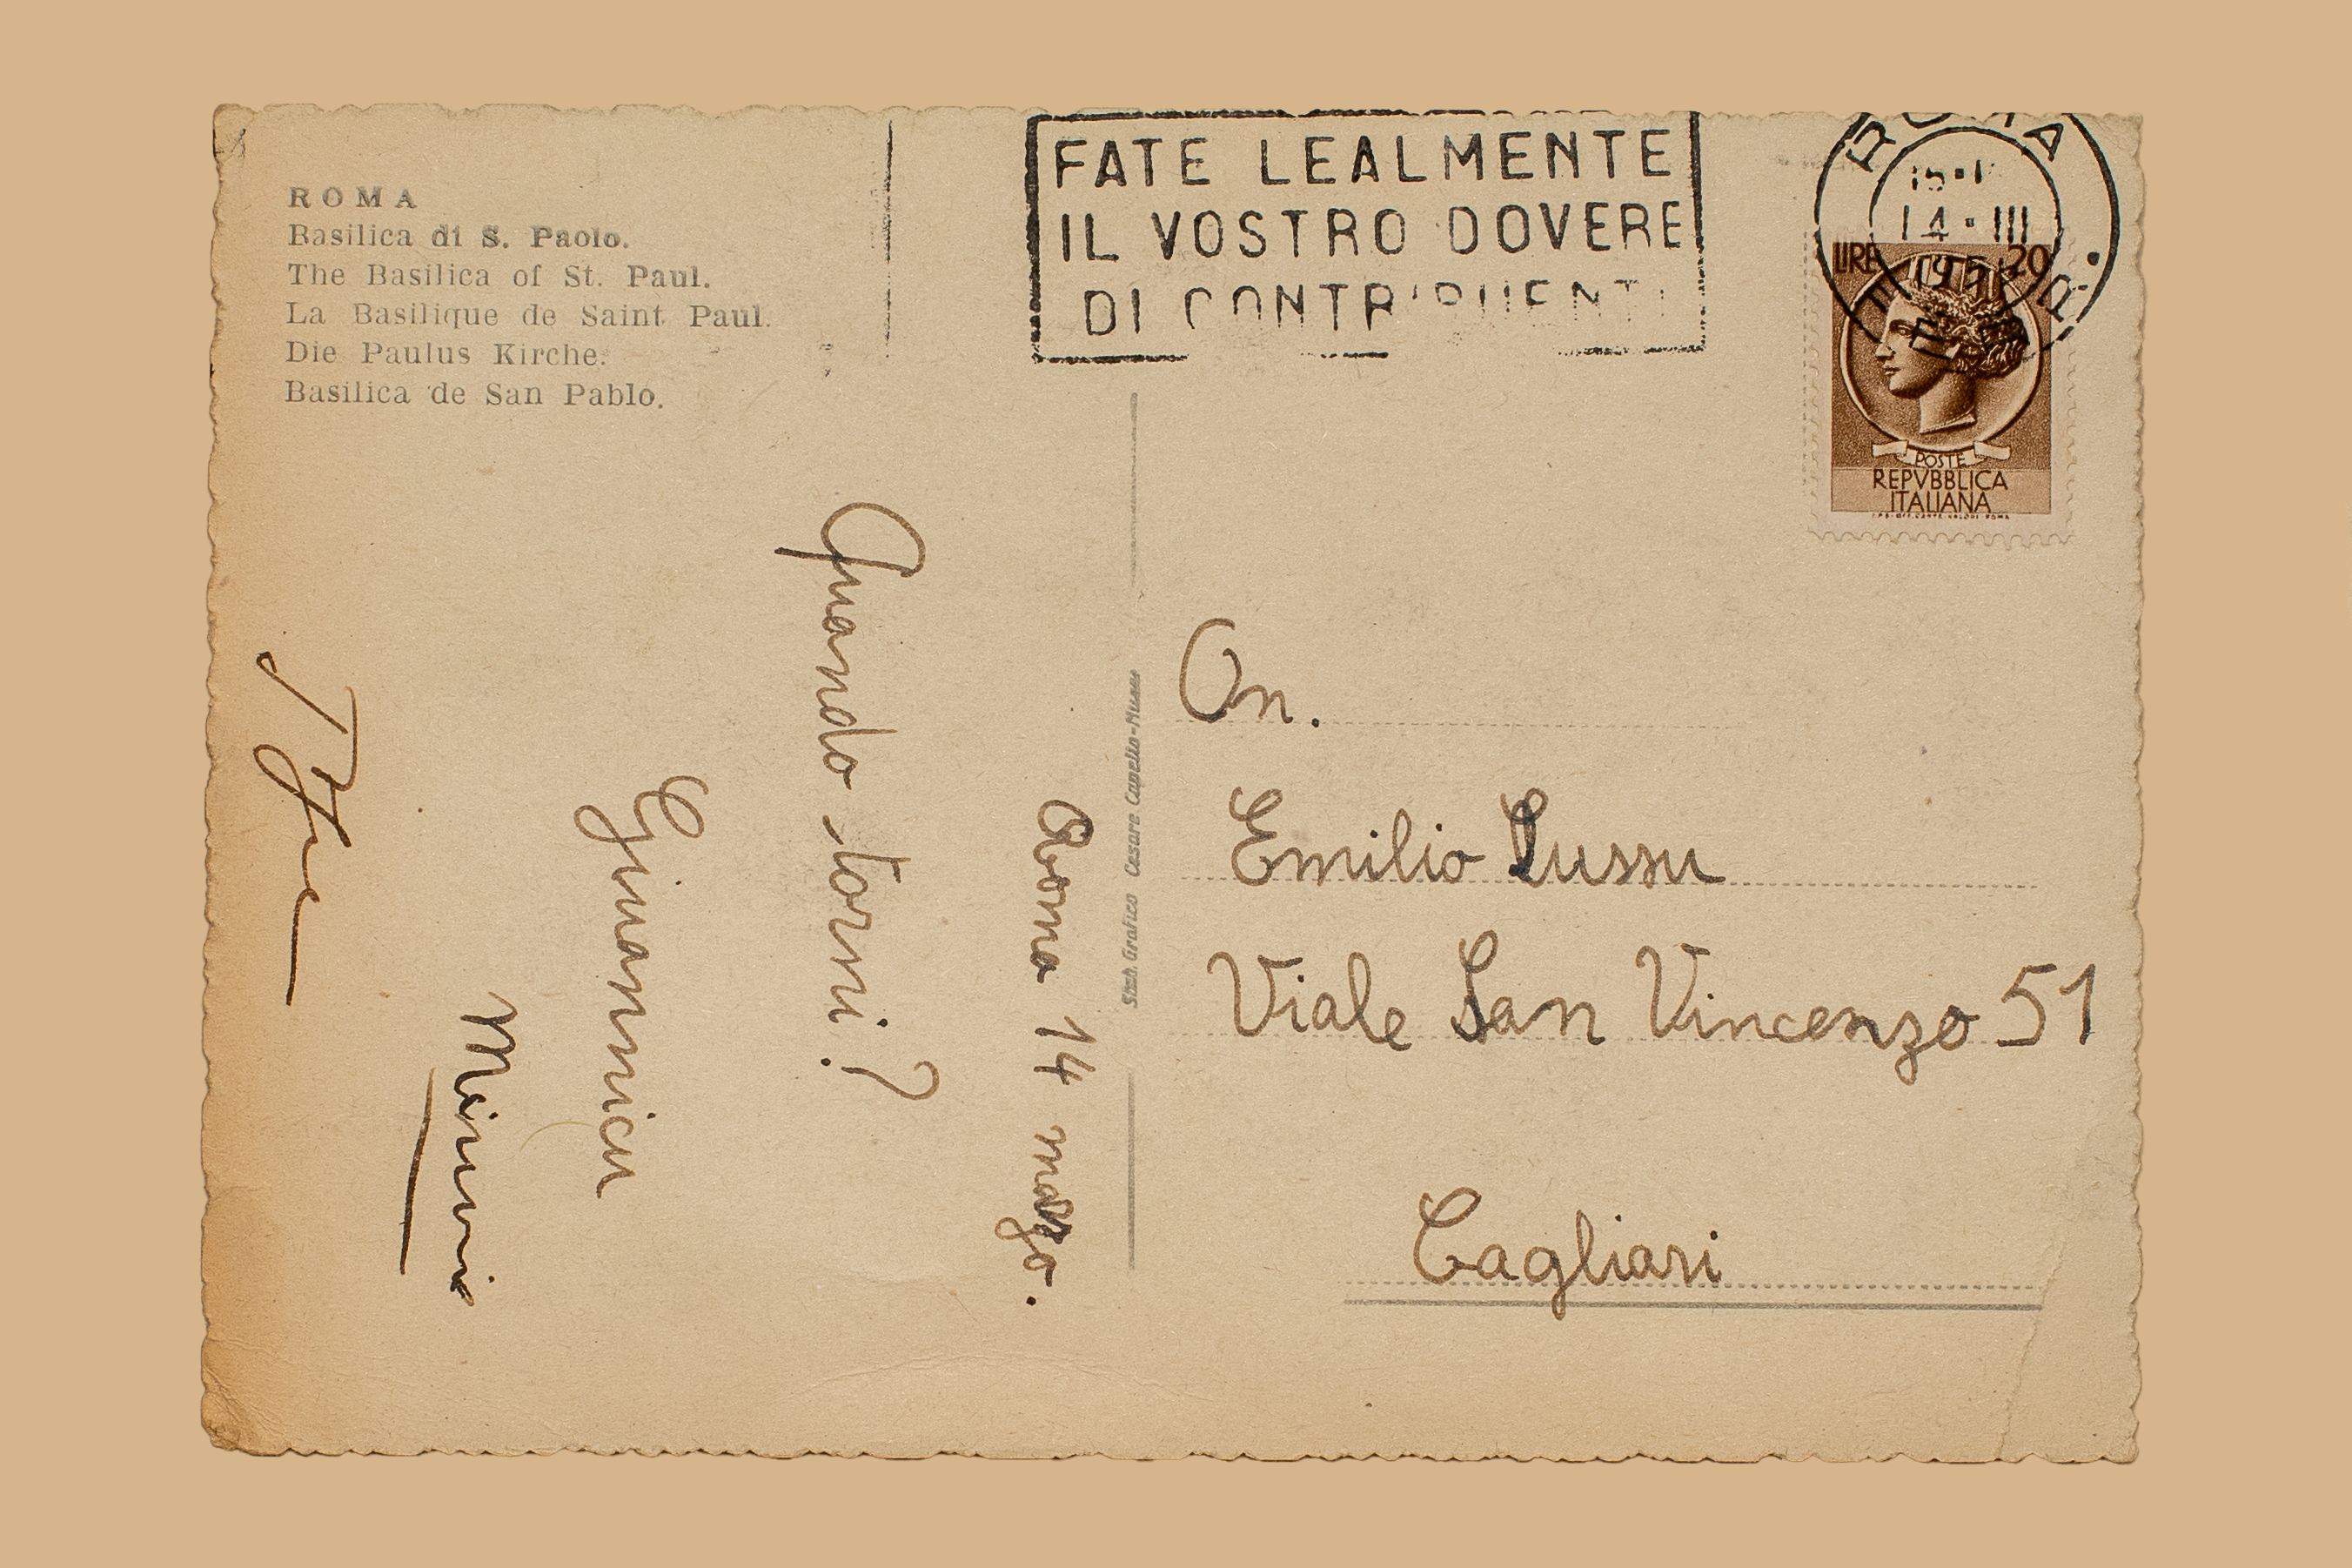 ROMA
Basilica di S. Paolo.
The Basilica of St. Paul.
La Basilique de Saint Paul.
Die Paulus Kirche.
Basilica de San Pablo.
FATE LEALMENTE
IL VOSTRO DOVERE
DI CONTRIBUENTI
ROMA
14·III
LIRE 20
POSTE
REPVBBLICA
ITALIANA
Roma 14 marzo.
Quando torni?
Giuannicu
Stab. Grafico Cesare Capello-Milano
On.
Emilio Lussu
Viale San Vincenzo 51
Cagliari